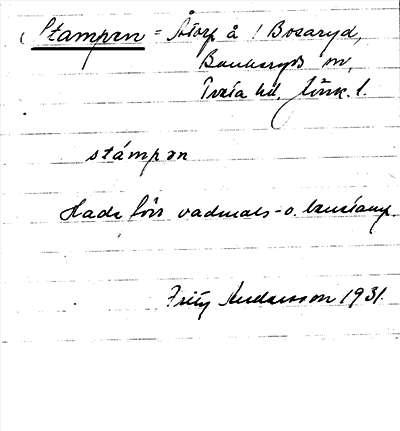 (Stampen = Åtorp å ! Bosaryd,
Bankeryds sn,
Tveta hd, Jönk. l.
stámpən
Hade förr vadmals- o.
Fritz Andersson 1931.